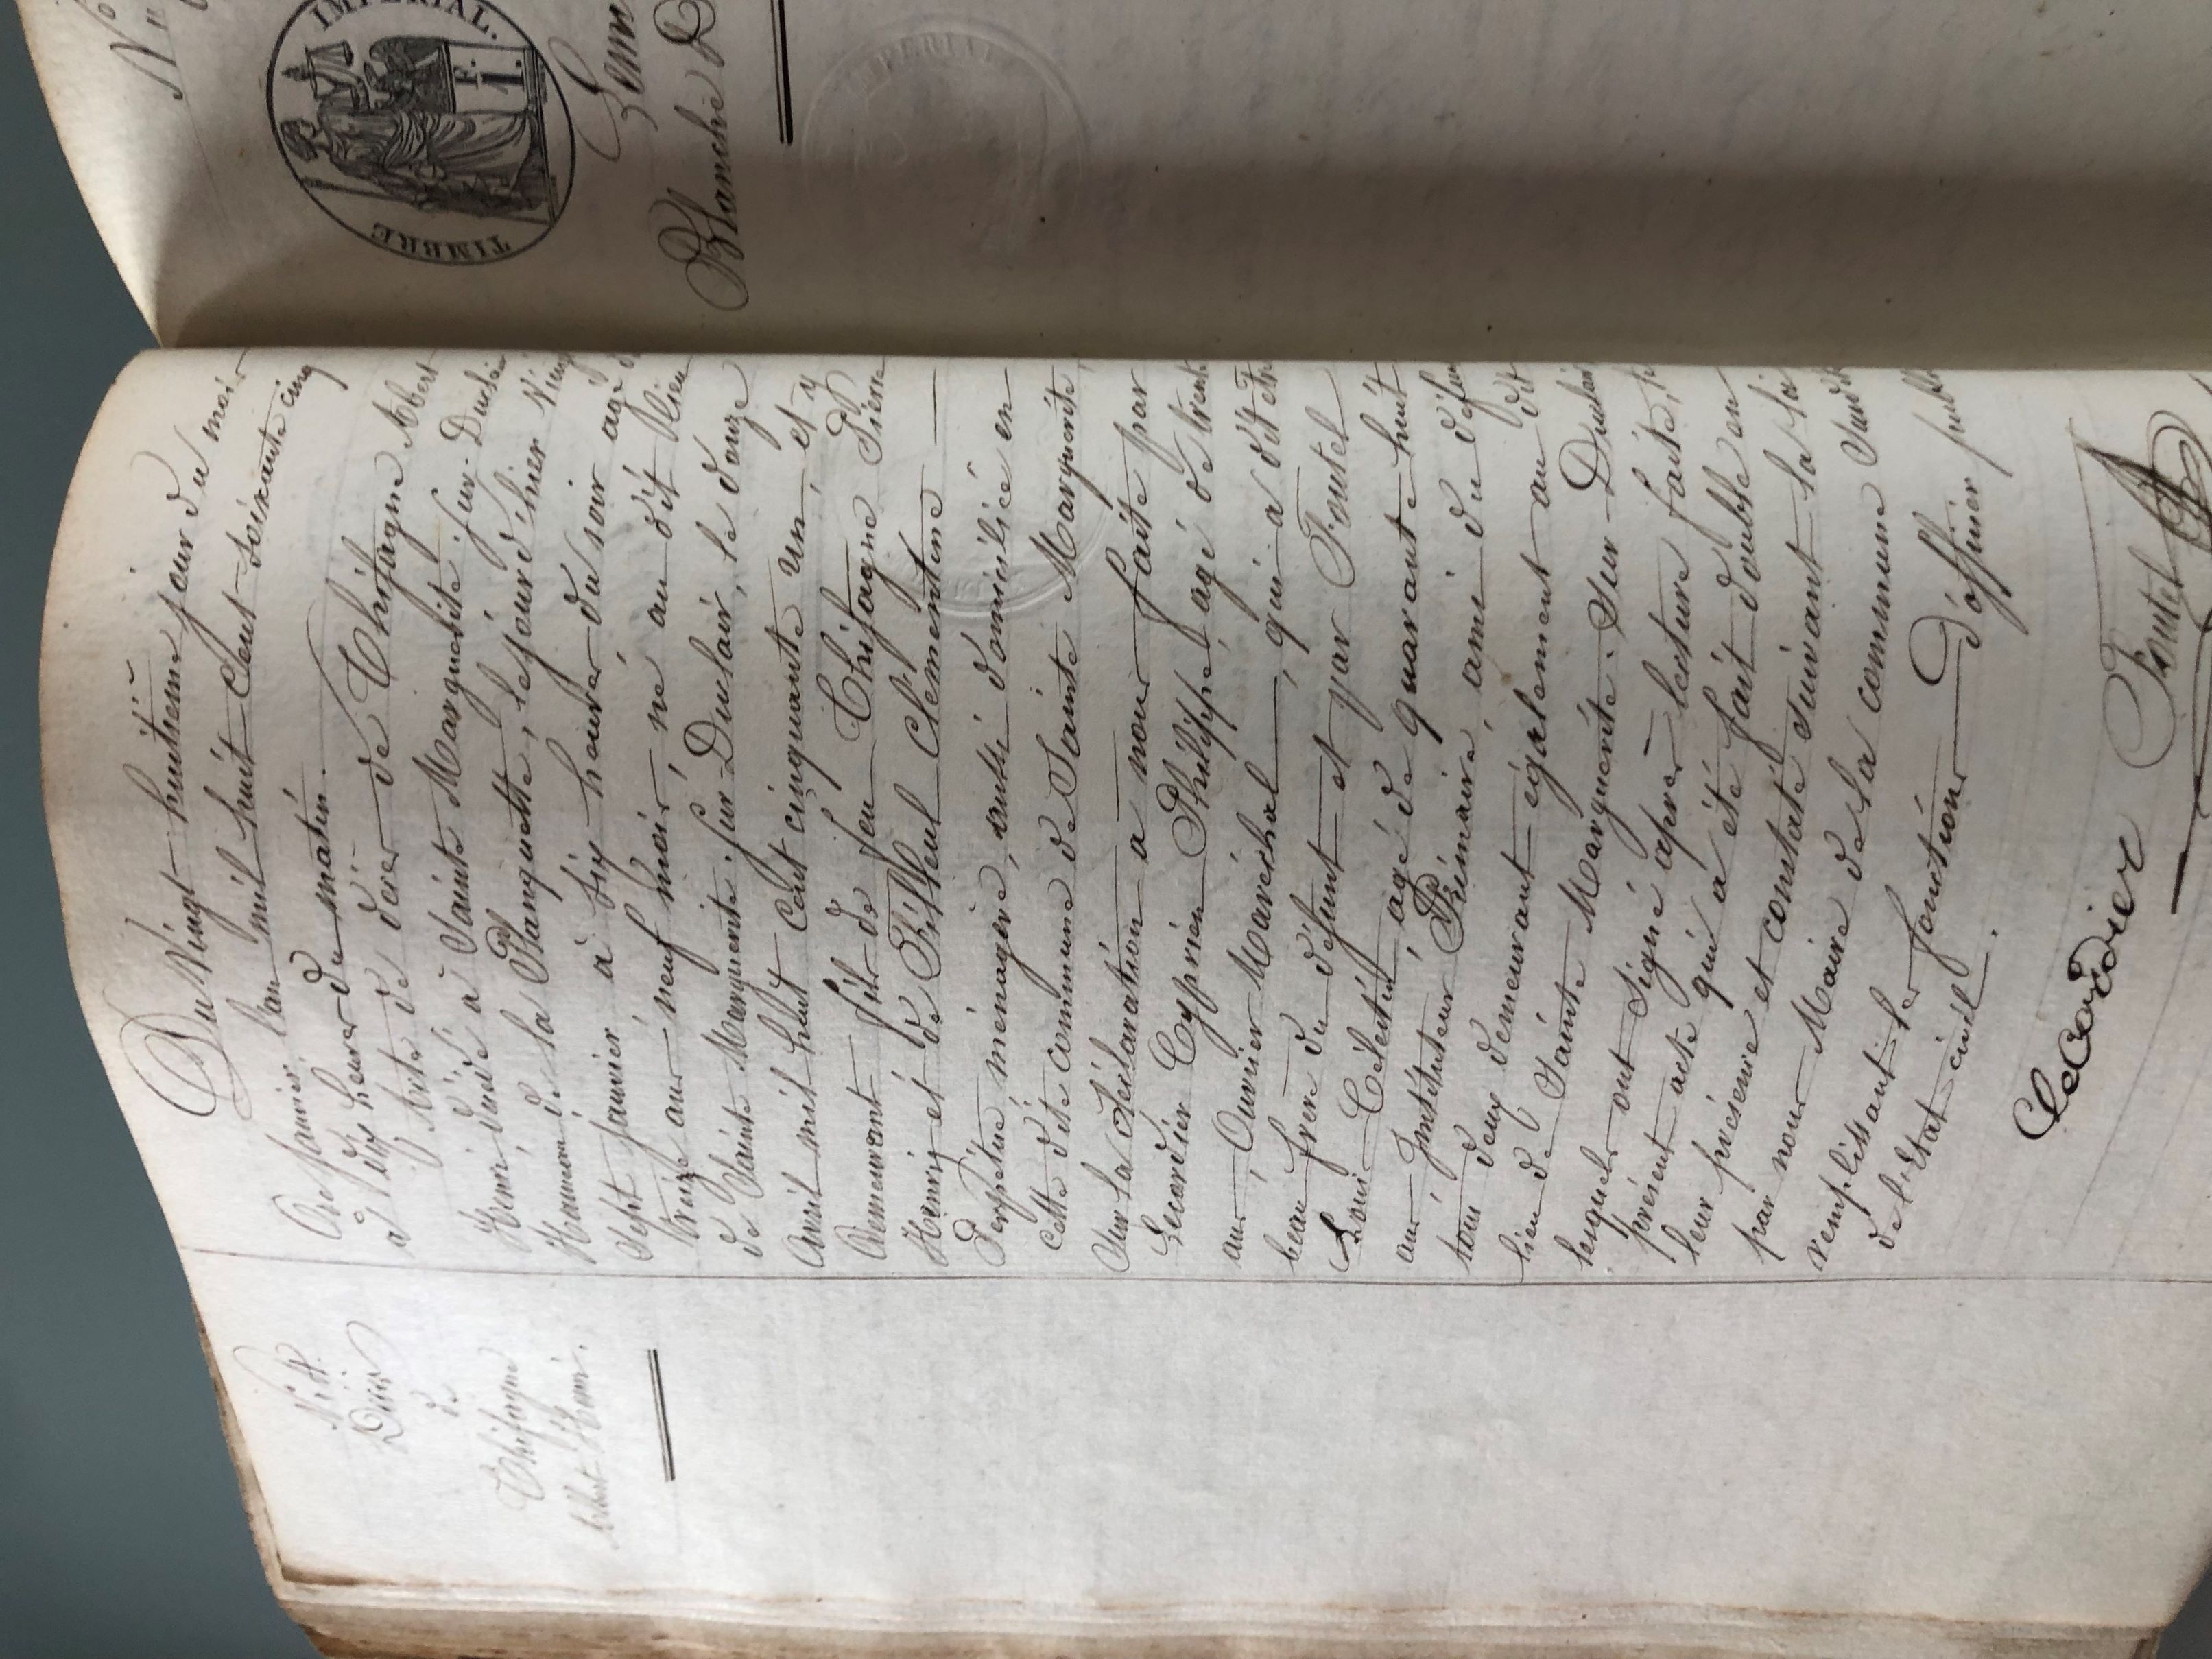 N° 4.
Décès
de
Thifagne
Albert Henri.
Du Vingt huitieme jour du mois
de Janvier, l'an mil huit cent soixante cinq
à dix heures du matin.
Acte de décès de Thifagne Albert
Henri, décédé à Sainte Marguerite. sur-Duclair
Hameau de la Planquette, le jour d'hier Vingt
Sept Janvier à six heures du soir agé de
treize ans neuf mois, né au dit lieu
de Sainte Marguerite. sur-Duclair, le douze
Avril mil huit cent cinquante un, et y
demeurant fils de feu Thifagne Pierre
Henry et de Clémentine
Perpétue ménagère, aussi domicilié en
cette dite commune de Sainte Marguerite,
Sur la déclaration a nous faite par
Lecordier Cyprien Philippe, agé de trente
ans, Ouvrier Marechal, qui a dit être
beau frere du défunt et par Foutel
Louis Celestin, agé de quarante huit
ans, Instituteur Primaire, ami du défunt
tous deux demeurant également au dit
lieu de Sainte Marguerite. Sur-Duclair
lesquels ont Signé après lecture faite, le
présent acte qui a été fait double en
leur présence et constaté suivant la loi
par nous Maire de la commune Sus dite
remplissant les fonctions d'officier public
de l'Etat civil.
LeCordier Foutel
N°
TIMBRE IMPERIAL.
1 F.
Blanche D
IMPERIAL